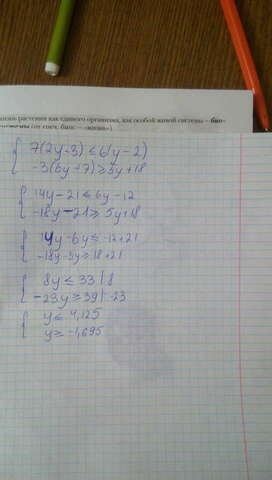 жизнь растения как единого организма, как особой живой системы – био-
(от греч. биос – «жизнь»)
7(2y-3) ≤ 6(y-2)
-3(6y+7) ≥ 5y+18
14y-21 ≤ 6y-12
-18y-21 ≥ 5y+18
14y-6y ≤ -12+21
-18y-5y ≥ 18+21
8y ≤ 33 |:8
-23y ≥ 39 |:-23
y ≤ 4,125
y ≥ -1,695